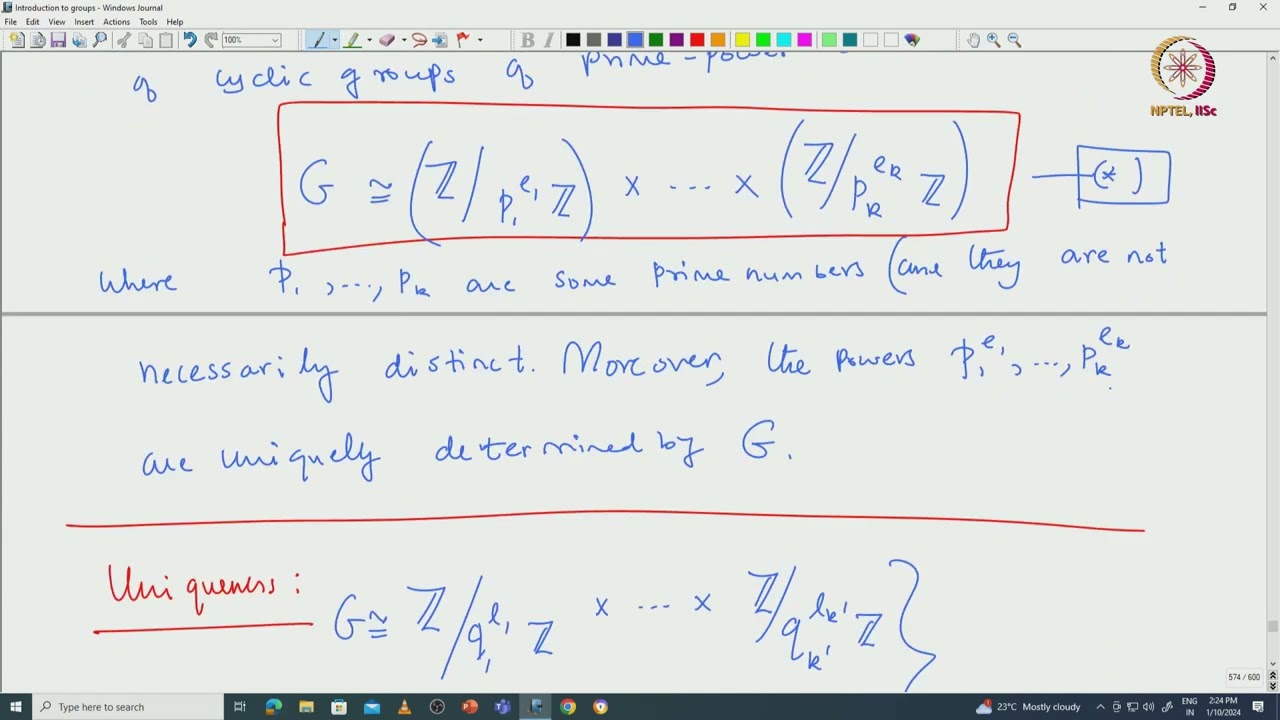 Introduction to groups - Windows Journal
File Edit View Insert Actions Tools Help
100%
B I
NPTEL, IISc
of cyclic groups of prime-power
G ≅ (ℤ/p₁^{e₁}ℤ) × ... × (ℤ/p_k^{e_k}ℤ) — (*)
where p₁, ..., p_k are some prime numbers (and they are not
necessarily distinct. Moreover, the powers p₁^{e₁}, ..., p_k^{e_k}
are uniquely determined by G.
Uniqueness: G ≅ ℤ/q₁^{l₁}ℤ × ... × ℤ/q_{k'}^{l_{k'}}ℤ }
574 / 600
Type here to search
23°C Mostly cloudy
ENG
IN
2:24 PM
1/10/2024